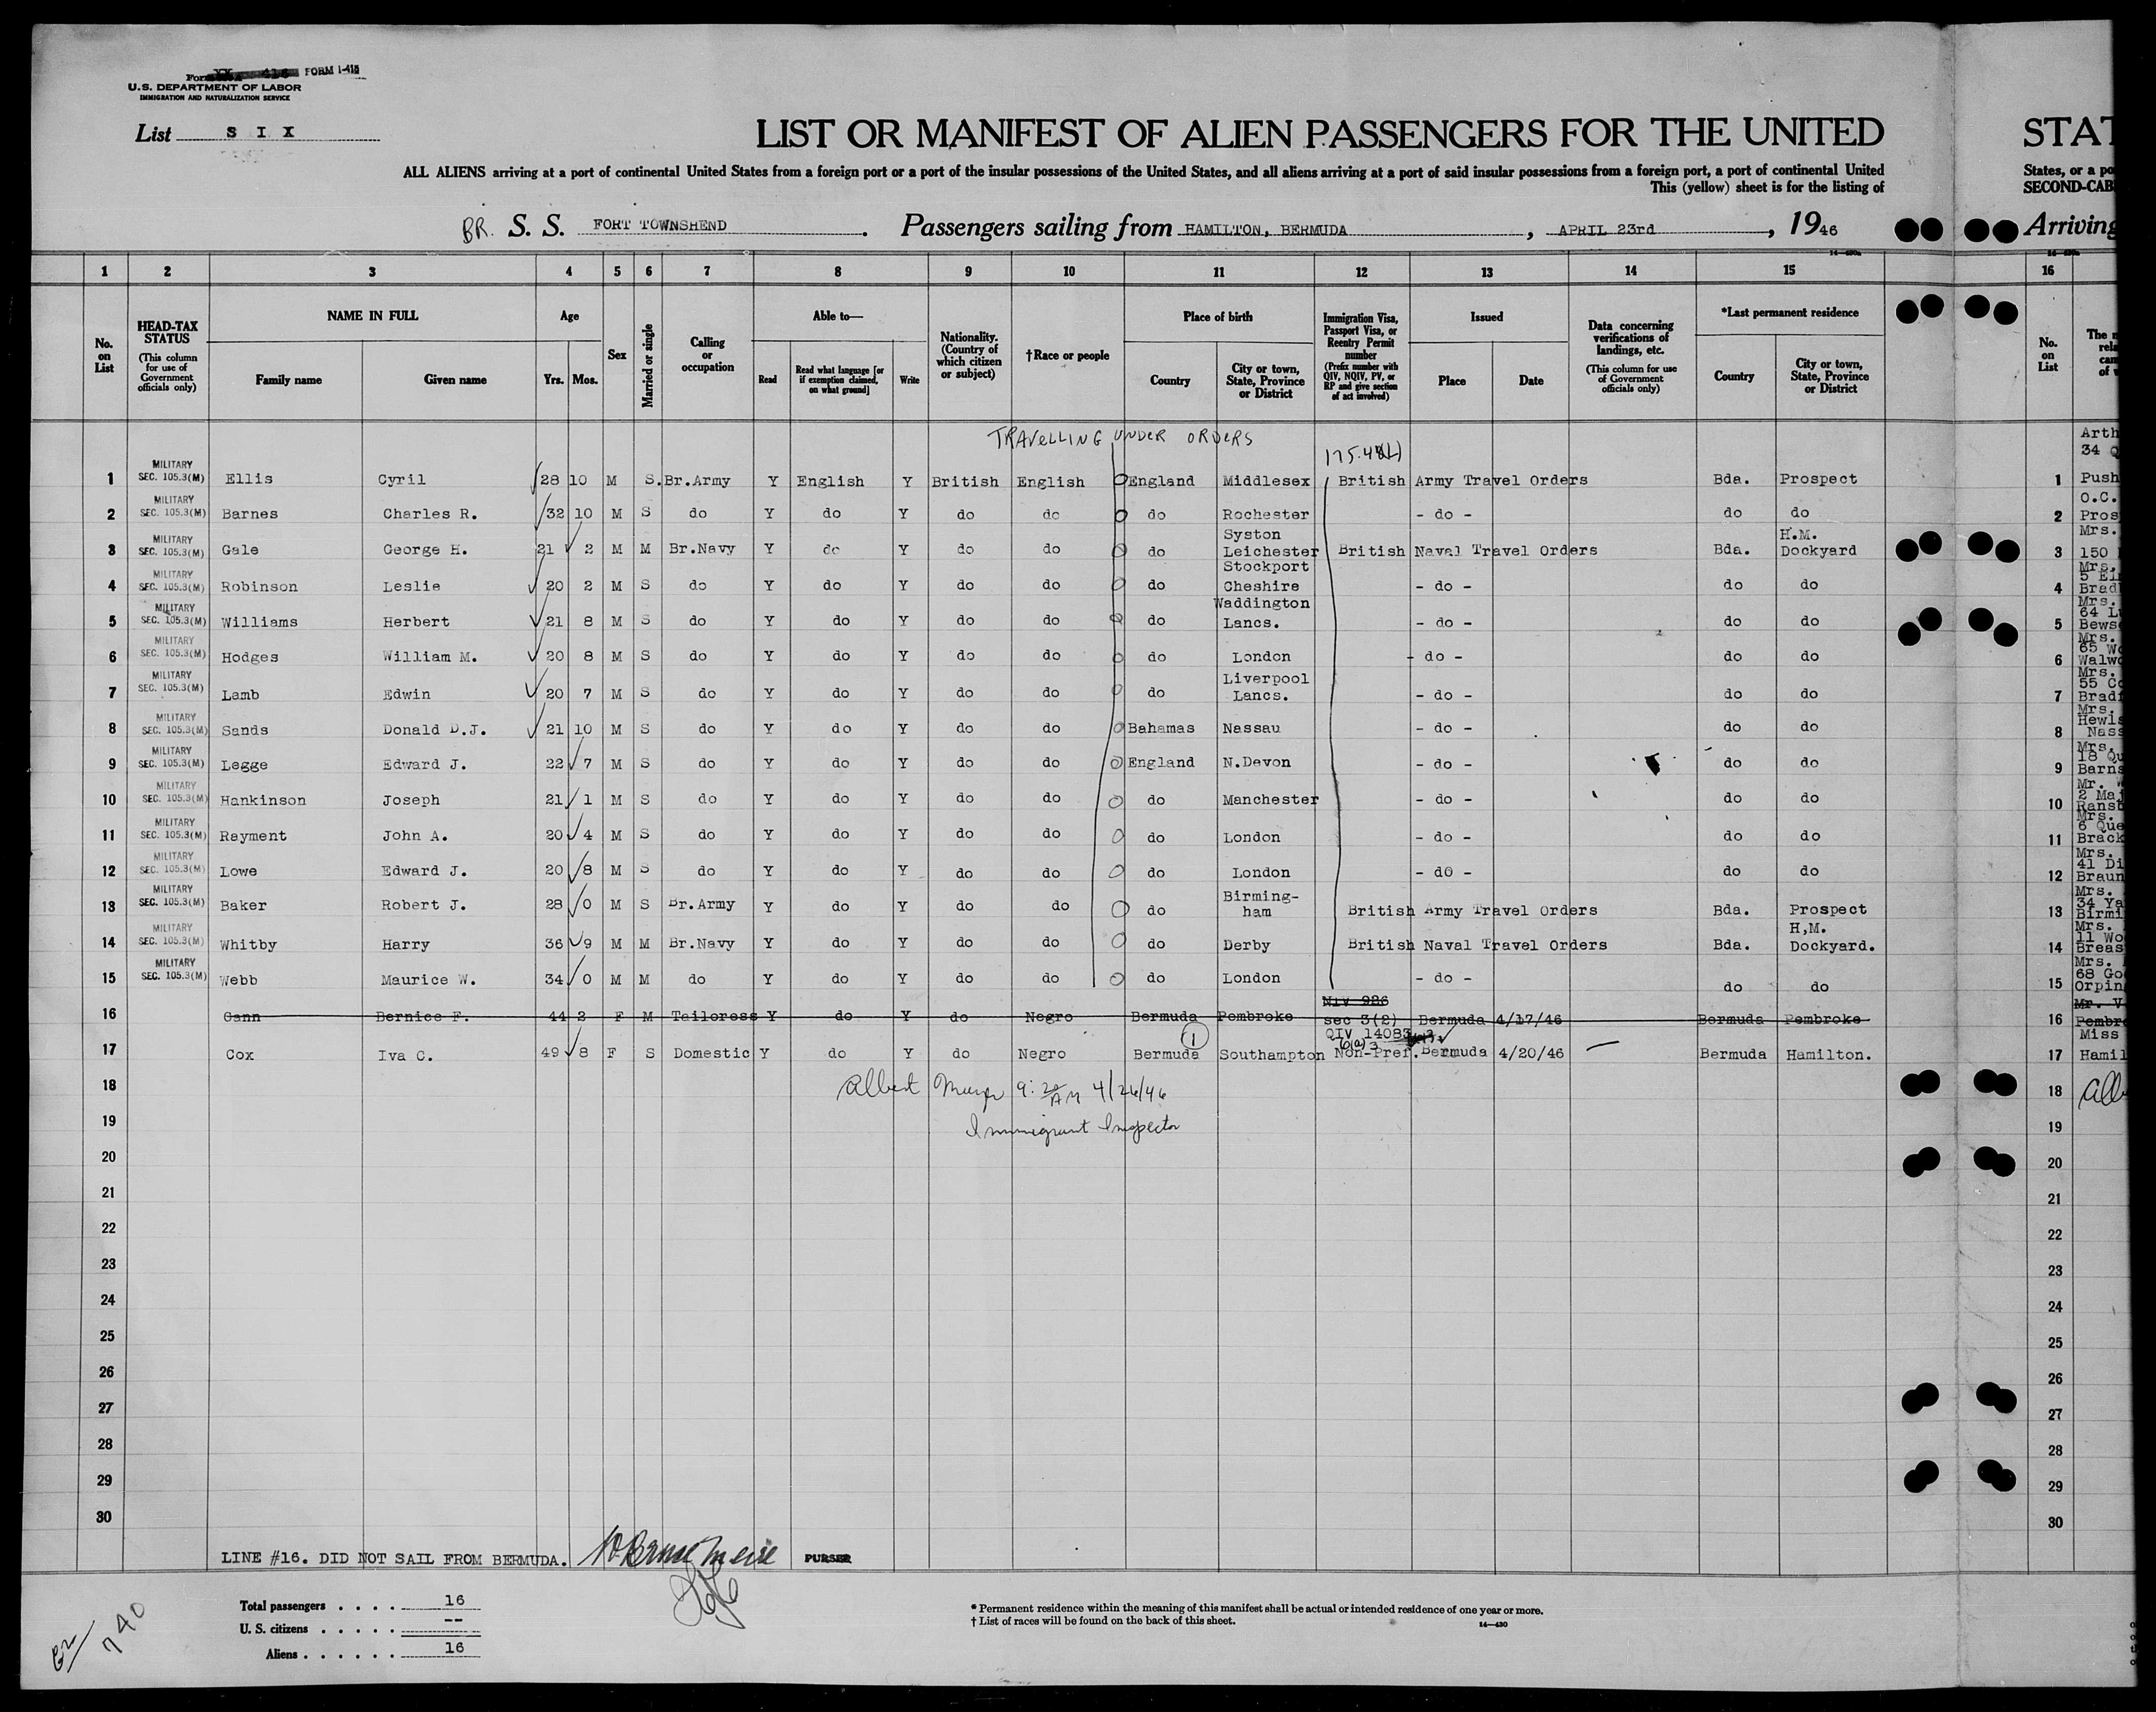 FORM I-415
U.S. DEPARTMENT OF LABOR
IMMIGRATION AND NATURALIZATION SERVICE
List S I X
LIST OR MANIFEST OF ALIEN PASSENGERS FOR THE UNITED STAT
ALL ALIENS arriving at a port of continental United States from a foreign port or a port of the insular possessions of the United States, and all aliens arriving at a port of said insular possessions from a foreign port, a port of continental United States, or a po
This (yellow) sheet is for the listing of SECOND-CAB
BR. S. S. FORT TOWNSHEND. Passengers sailing from HAMILTON, BERMUDA, APRIL 23rd, 1946 Arriving
1 2 3 4 5 6 7 8 9 10 11 12 13 14 15 16
No. on List
HEAD-TAX STATUS (This column for use of Government officials only)
NAME IN FULL
Family name Given name
Age
Yrs. Mos.
Sex
Married or single
Calling or occupation
Able to—
Read
Read what language [or if exemption claimed, on what ground]
Write
Nationality. (Country of which citizen or subject)
†Race or people
Place of birth
Country
City or town, State, Province or District
Immigration Visa, Passport Visa, or Reentry Permit number (Prefix number with QIV, NQIV, PV, or RP and give section of act involved)
Issued
Place Date
Data concerning verifications of landings, etc. (This column for use of Government officials only)
*Last permanent residence
Country
City or town, State, Province or District
No. on List
TRAVELLING UNDER ORDERS
1 MILITARY SEC. 105.3(M) Ellis Cyril 28 10 M S. Br.Army Y English Y British English England Middlesex British Army Travel Orders Bda. Prospect 1 Push
2 MILITARY SEC. 105.3(M) Barnes Charles R. 32 10 M S do Y do Y do do do Rochester - do - do do 2 Pros
3 MILITARY SEC. 105.3(M) Gale George H. 21 2 M M Br.Navy Y do Y do do do Syston Leichester British Naval Travel Orders Bda. H.M. Dockyard 3 150
4 MILITARY SEC. 105.3(M) Robinson Leslie 20 2 M S do Y do Y do do do Stockport Cheshire - do - do do 4 Brad
5 MILITARY SEC. 105.3(M) Williams Herbert 21 8 M S do Y do Y do do do Waddington Lancs. - do - do do 5 Bews
6 MILITARY SEC. 105.3(M) Hodges William M. 20 8 M S do Y do Y do do do London - do - do do 6 Walwo
7 MILITARY SEC. 105.3(M) Lamb Edwin 20 7 M S do Y do Y do do do Liverpool Lancs. - do - do do 7 Bradf
8 MILITARY SEC. 105.3(M) Sands Donald D.J. 21 10 M S do Y do Y do do Bahamas Nassau - do - do do 8 Nass
9 MILITARY SEC. 105.3(M) Legge Edward J. 22 7 M S do Y do Y do do England N.Devon - do - do do 9 Barns
10 MILITARY SEC. 105.3(M) Hankinson Joseph 21 1 M S do Y do Y do do do Manchester - do - do do 10 Ransb
11 MILITARY SEC. 105.3(M) Rayment John A. 20 4 M S do Y do Y do do do London - do - do do 11 Brack
12 MILITARY SEC. 105.3(M) Lowe Edward J. 20 8 M S do Y do Y do do do London - do - do do 12 Braun
13 MILITARY SEC. 105.3(M) Baker Robert J. 28 0 M S Br.Army Y do Y do do do Birming-ham British Army Travel Orders Bda. Prospect 13 Birmi
14 MILITARY SEC. 105.3(M) Whitby Harry 36 9 M M Br.Navy Y do Y do do do Derby British Naval Travel Orders Bda. H,M. Dockyard. 14 Breas
15 MILITARY SEC. 105.3(M) Webb Maurice W. 34 0 M M do Y do Y do do do London - do - do do 15 Orpin
16 Cann Bernice F. 44 2 F M Tailoress Y do Y do Negro Bermuda Pembroke NIV 926 sec 3(2) Bermuda 4/17/46 Bermuda Pembroke 16 Pembr
17 Cox Iva C. 49 8 F S Domestic Y do Y do Negro Bermuda Southampton QIV 14083 Non-Pref. Bermuda 4/20/46 Bermuda Hamilton. 17 Hamil
18 Albert 9:20 AM 4/26/46 18
19 Immigrant Inspector 19
20 20
21 21
22 22
23 23
24 24
25 25
26 26
27 27
28 28
29 29
30 30
LINE #16. DID NOT SAIL FROM BERMUDA. PURSER
Total passengers . . . . 16
U. S. citizens . . . . . --
Aliens . . . . . . 16
* Permanent residence within the meaning of this manifest shall be actual or intended residence of one year or more.
† List of races will be found on the back of this sheet.
14—430
740